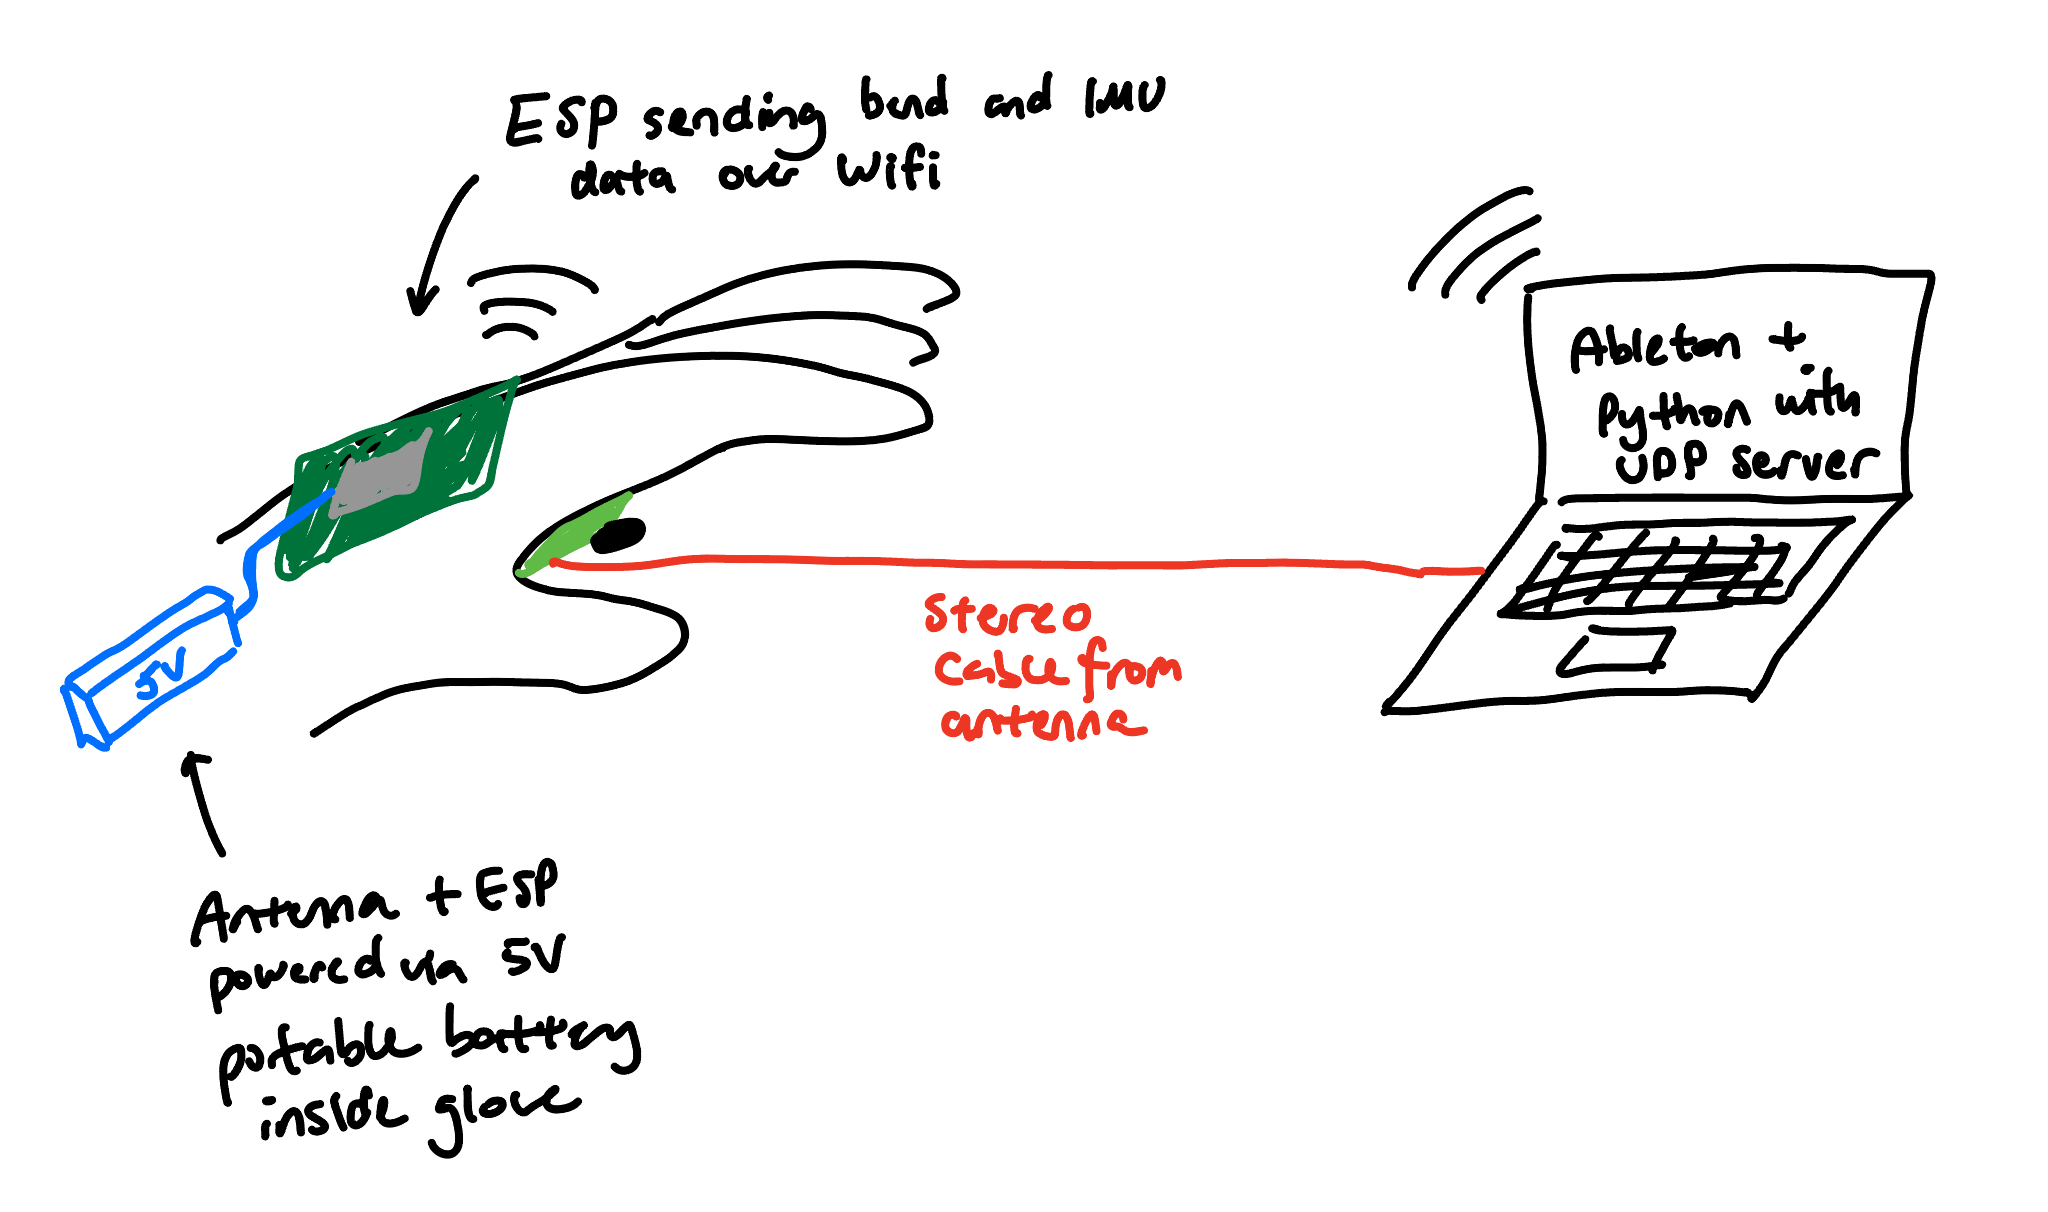 ESP sending bend and IMU
data over Wifi
Ableton +
Python with
UDP server
5V
Stereo
Cable from
antenna
Antenna + ESP
powered via 5V
portable battery
inside glove